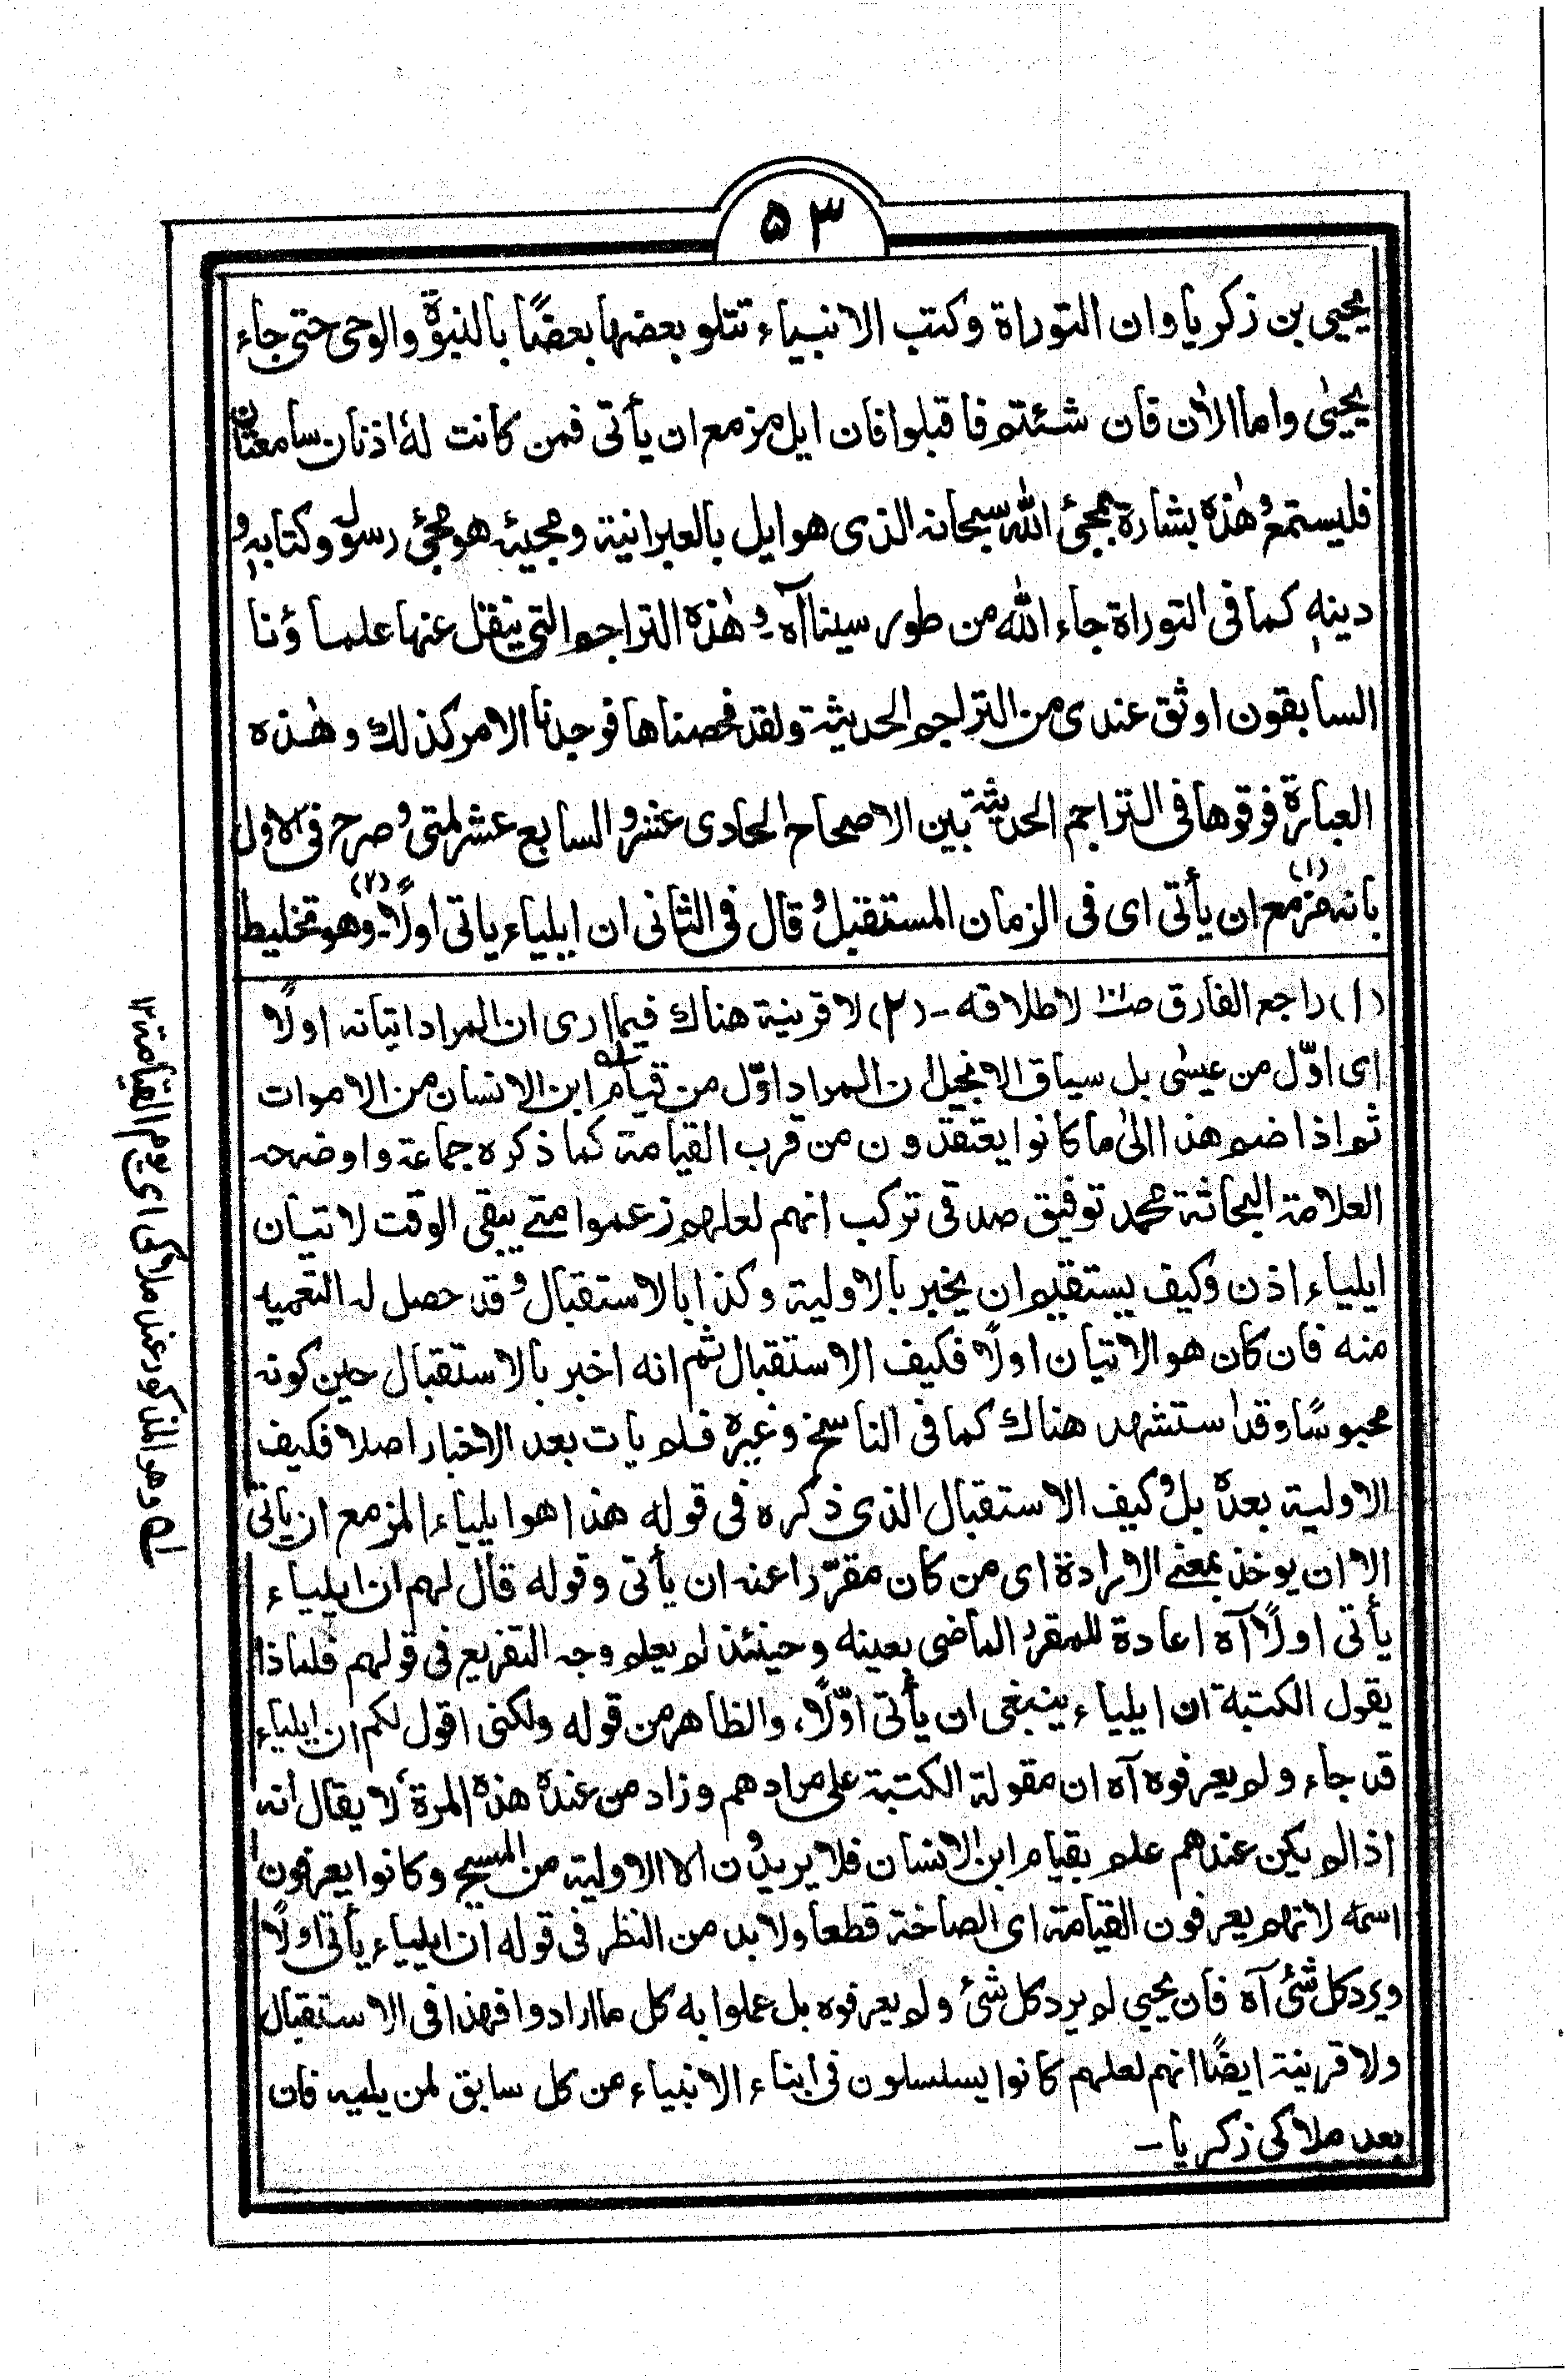 ۵۳
يحيى بن زكريا وان التوراة وكتب الانبياء تتلو بعضها بعضًا بالنبوة والوحى حتى جاء
يحيىٰ واما الاٰن فان شئتم فاقبلوا فان ايل مزمع ان يأتى فمن كانت لهٗ اذنان سامعتان
فليستمع وهٰذه بشارة بمجئ الله سبحانه الذى هو ايل بالعبرانية ومجيئه هو مجئ رسوله وكتابه و
دينه كما فى التوراة جاء الله من طور سينا آه ـ وهٰذه التراجم التى ينقل عنها علماؤنا
السابقون اوثق عندى من التراجم الحديثة ولقد فحصناها فوجدنا الامر كذلك وهٰذه
العبارة فرقوها فى التراجم الحديثة بين الاصحاح الحادى عشر والسابع عشر لمتى وصرح فى الاول
بانه مزمع (١) ان يأتى اى فى الزمان المستقبل وقال فى الثانى ان ايلياء ياتى اولًا ـ (٢) وهو تخليط
(١) راجع الفارق لاطلاقه ـ (٢) لا قرينة هناك فيما ارى ان المراد اتيانه اولًا
اى اوّل من عيسٰى بل سياق الانجيل ان المراد اوّل من قيام له ابن الانسان من الاموات
ثم اذا ضم هذا الىٰ ما كانوا يعتقدون من قرب القيامة كما ذكره جماعة واوضحه
العلامة البحاثة محمد توفيق صدقى تركب انهم لعلهم زعموا متے يبقى الوقت لاتيان
ايلياء اذن وكيف يستقيم ان يخبر بالاولية وكذا بالاستقبال وقد حصل له التعميه
منه فان كان هو الاتيان اولًا فكيف الاستقبال ثم انه اخبر بالاستقبال حين كونه
محبوسًا وقد استشهد هناك كما فى الناسخ وغيره فلم يات بعد الاخبار اصلا فكيف
الاولية بعدهٗ بل وكيف الاستقبال الذى ذكره فى قوله هذا هو ايلياء المزمع ان ياتى
الا ان يوخذ بمعنے الارادة اى من كان مقرّرا عنه ان يأتى وقوله قال لهم ان ايلياء
يأتى اولًا آه اعادة للمقرر الماضى بعينه وحينئذ لم يعلم وجه التفريع فى قولهم فلماذا
يقول الكتبة ان ايلياء ينبغى ان يأتى اوّلًا، والظاهر من قوله ولكنى اقول لكم ان ايلياء
قد جاء ولم يعرفوه آه ان مقولة الكتبة على مرادهم وزاد من عنده هذه المرة، لا يقال انه
اذا لم يكن عندهم علم بقيام ابن الانسان فلا يريدون الا الاولية من المسيح وكانوا يعرفون
اسمه لانهم يعرفون القيامة اى الصاخة قطعا ولابد من النظر فى قوله ان ايلياء يأتى اولًا
ويرد كل شئ آه فان يحيى لم يرد كل شئ ولم يعرفوه بل عملوا به كل ما ارادوا فهذا فى الاستقبال
ولا قرينة ايضًا انهم لعلهم كانوا يسلسلون فى ابناء الانبياء من كل سابق لمن يليه فان
بعد ملاكى زكريا ـ
له وهو المذكور عند ملاكى اى يوم القيامة ١٢